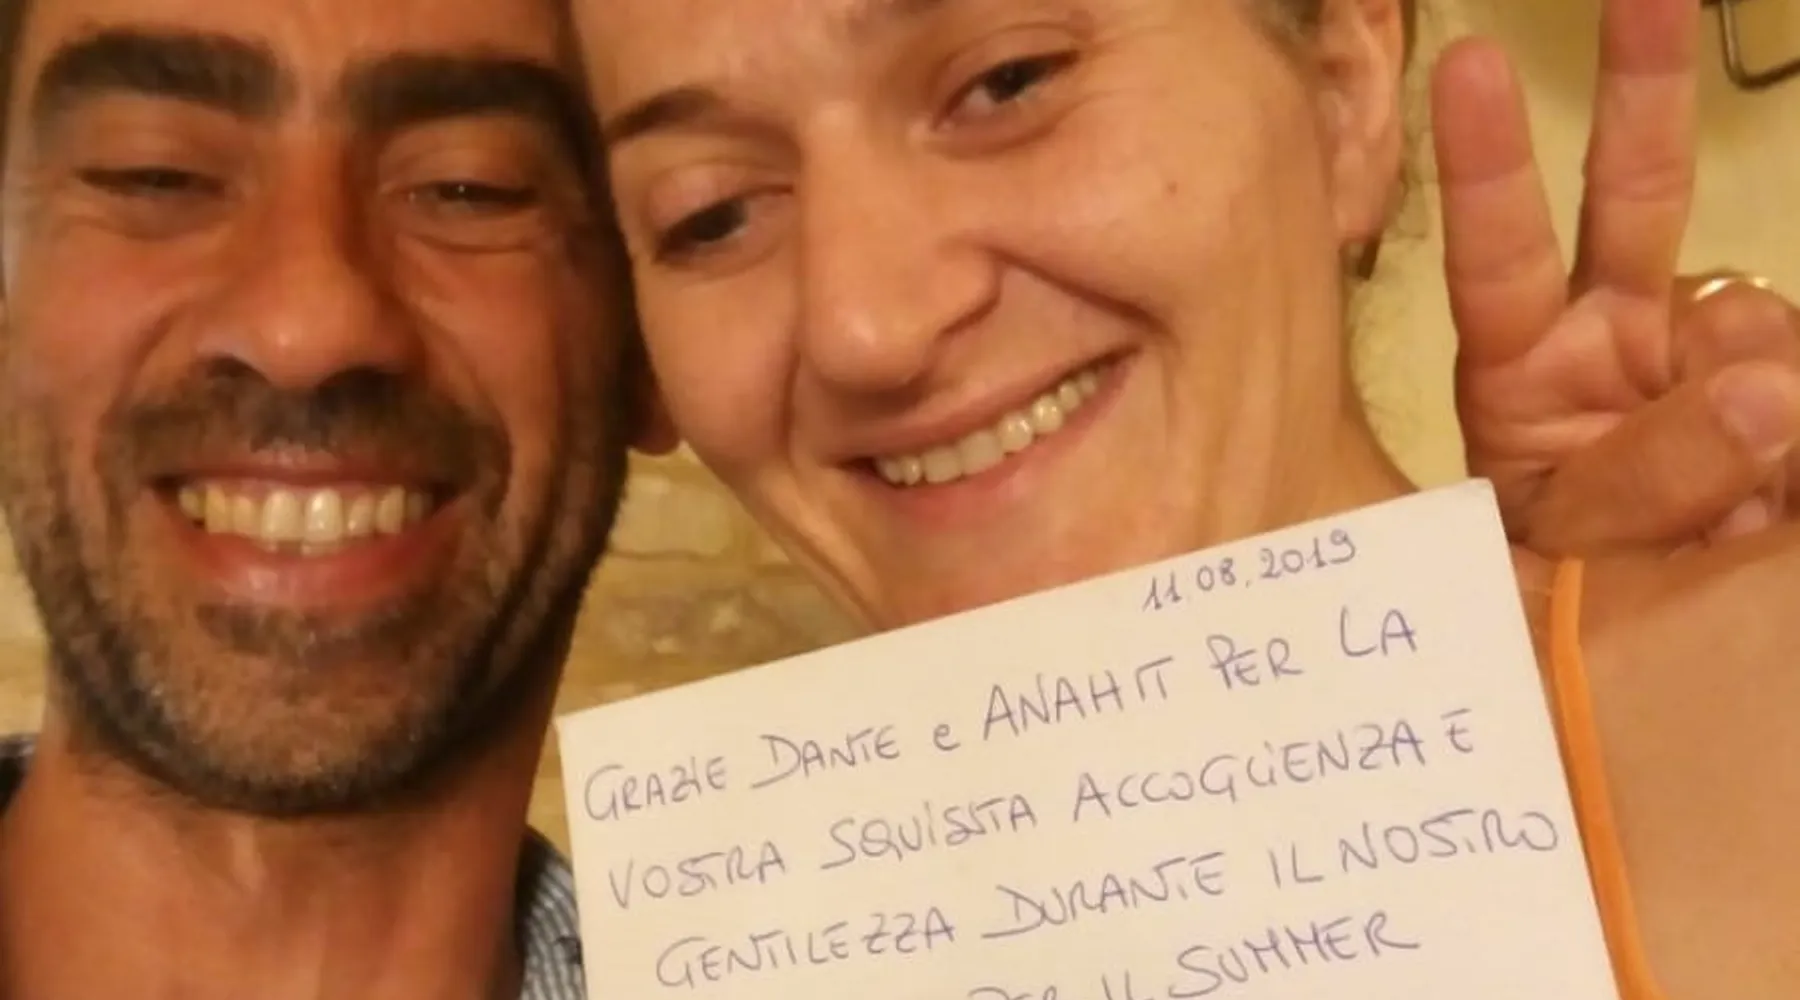 11.08.2019
GRAZIE DANTE e ANAHIT PER LA
VOSTRA SQUISITA ACCOGLIENZA E
GENTILEZZA DURANTE IL NOSTRO
PER IL SUMMER